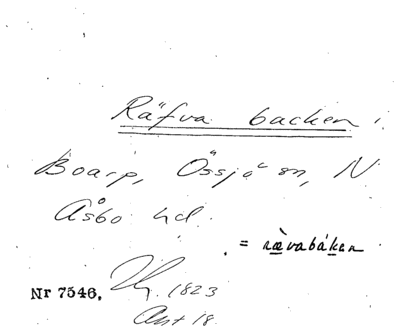 Räfva backen
Boarp, Össjö sn, N
Åsbo hd.
= rävabáken
Nr 7546. 1823
Akt 18